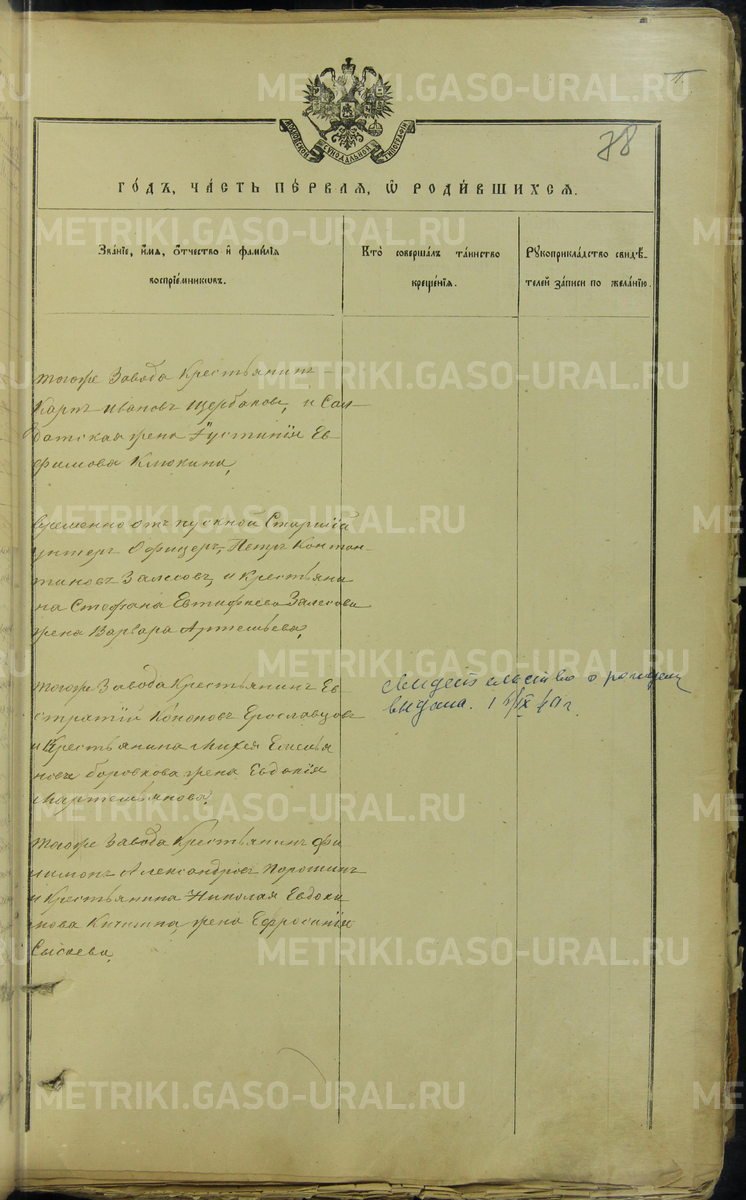 78
МОСКОВСКОЙ СѴНОДАЛЬНОЙ ТИПОГРАФІИ
ГО́ДЪ, ЧА́СТЬ ПЕ́РВАЯ, Ѡ РОДИ́ВШИХСЯ.
Зва́нїе, и́мя, о́тчество и҆ фами́лїя
воспрїе́мникѡвъ.
Кто̀ соверша́лъ та́инство
креще́нїя.
Рꙋкоприкла́дство свидѣ́-
телей за́писи по жела́нїю.
тогоже Завода Крестьянинъ
Карпъ Ивановъ Щербаковъ, и Сол
датская жена Іустинія Ев
фимова Клюкина,
Временно отпускной Старшій
унтеръ Офицеръ, Петръ Констан
тиновъ Залесовъ, и Крестьяни
на Стефана Евтифиева Залесова
жена Варвара Артемьева,
тогоже Завода Крестьянинъ Ев
стратій Кононовъ Ерославцовъ
и Крестьянина Михея Емелья
нова Боровкова жена Евдокія
Мартемьянова,
тогоже Завода Крестьянинъ Фи
лимонъ Александровъ Порошинъ
и Крестьянина Николая Евдоки
мова Кичигина, жена Ефросинія
Сысоева,
Свидетельство о рождении
выдано.
METRIKI.GASO-URAL.RU